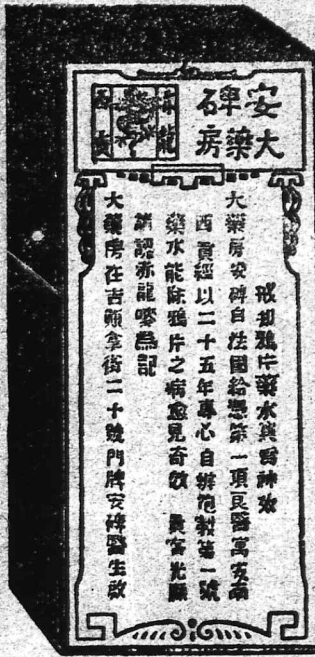 安大
碑藥
石房
赤龍
為㕑
戒却鴉片藥水與醫神效
大藥房安碑自法國給憑第一項良醫寓安南
西貢經以二十五年專心自辦炮製第一號
藥水能除鴉片之病愈見奇效 貴客光顧
請認赤龍嘜為記
大藥房在吉顺拿街二十號門牌安碑醫生啟